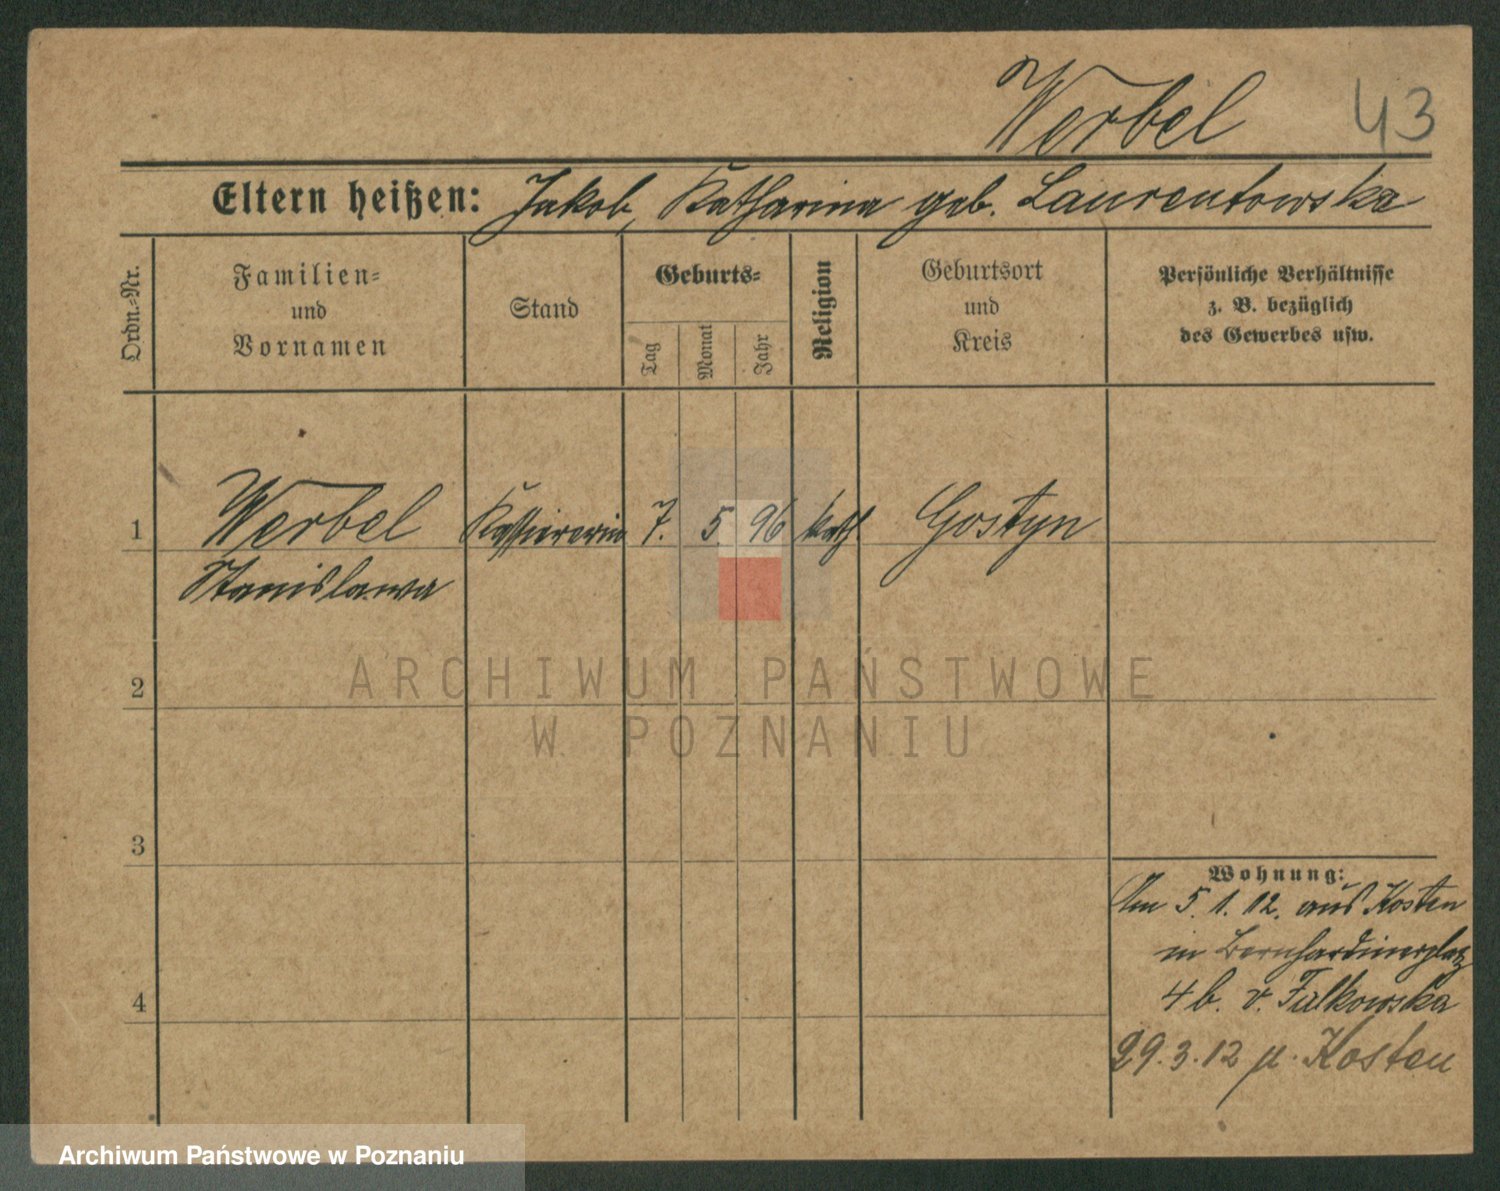 Werbel 43
Eltern heißen: Jakob, Katharina geb. Laurentowska
Ordn.-Nr.
Familien-
und
Vornamen
Stand
Geburts-
Tag
Monat
Jahr
Religion
Geburtsort
und
Kreis
Persönliche Verhältnisse
z. B. bezüglich
des Gewerbes usw.
1 Werbel Kassiererin 7. 5. 96 kath. Gostyn
Stanislawa
2
3
4
Wohnung:
Am 5. 1. 12. aus Kosten
in Bernhardinerplatz
4 b. v. Falkowska
29.3.12 n. Kosten
ARCHIWUM PAŃSTWOWE
W POZNANIU
Archiwum Państwowe w Poznaniu